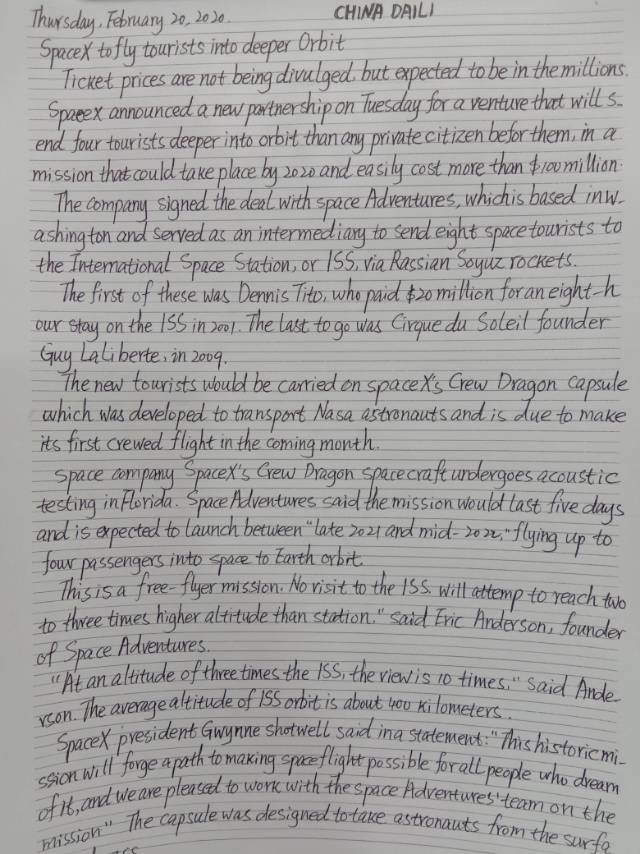 Thursday, February 20, 2020. CHINA DAILI
SpaceX to fly tourists into deeper Orbit
Ticket prices are not being divulged, but expected to be in the millions.
Spaeex announced a new partnership on Tuesday for a venture that will s-
end four tourists deeper into orbit than any private citizen befor them, in a
mission that could take place by 2020 and easily cost more than $100 million.
The company signed the deal with space Adventures, which is based in W-
ashington and served as an intermediary to send eight space tourists to
the International Space Station, or ISS, via Rassian Soyuz rockets.
The first of these was Dennis Tito, who paid $20 million for an eight-h
our stay on the ISS in 2001. The last to go was Cirque du Soleil founder
Guy LaLiberte, in 2009.
The new tourists would be carried on spaceX's Crew Dragon capsule
which was developed to transport Nasa astronauts and is due to make
its first crewed flight in the coming month.
Space company SpaceX's Crew Dragon spacecraft undergoes acoustic
testing in Florida. Space Adventures said the mission would last five days
and is expected to launch between "late 2021 and mid-2022," flying up to
four passengers into space to Earth orbit.
This is a free-flyer mission. No visit to the ISS. will attemp to reach two
to three times higher altitude than station." said Eric Anderson, founder
of Space Adventures.
"At an altitude of three times the ISS, the view is 10 times," said Ande-
rson. The average altitude of ISS orbit is about 400 kilometers.
SpaceX president Gwynne shotwell said in a statement: "This historic mi-
ssion will forge a path to making spaceflight possible for all people who dream
of it, and we are pleased to work with the space Adventures' team on the
mission" The capsule was designed to take astronauts from the surfa